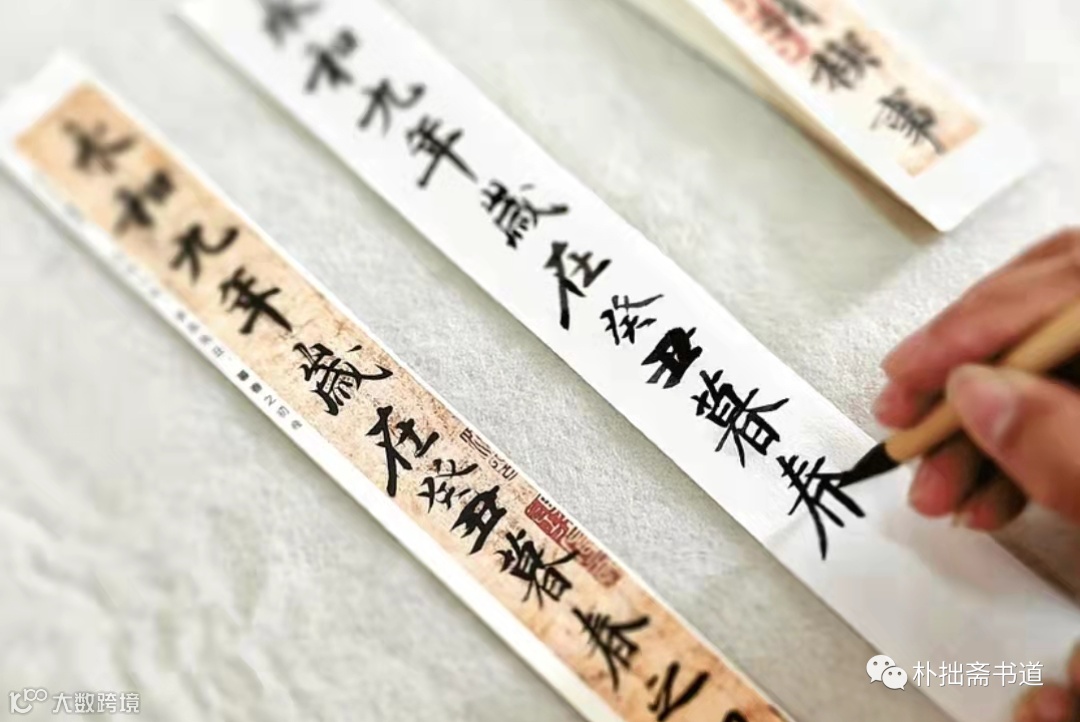 永和九年歲在癸丑暮春之
永和九年歲在癸丑暮春
禊事
暮春之初會
朴拙斋书道
大数跨境